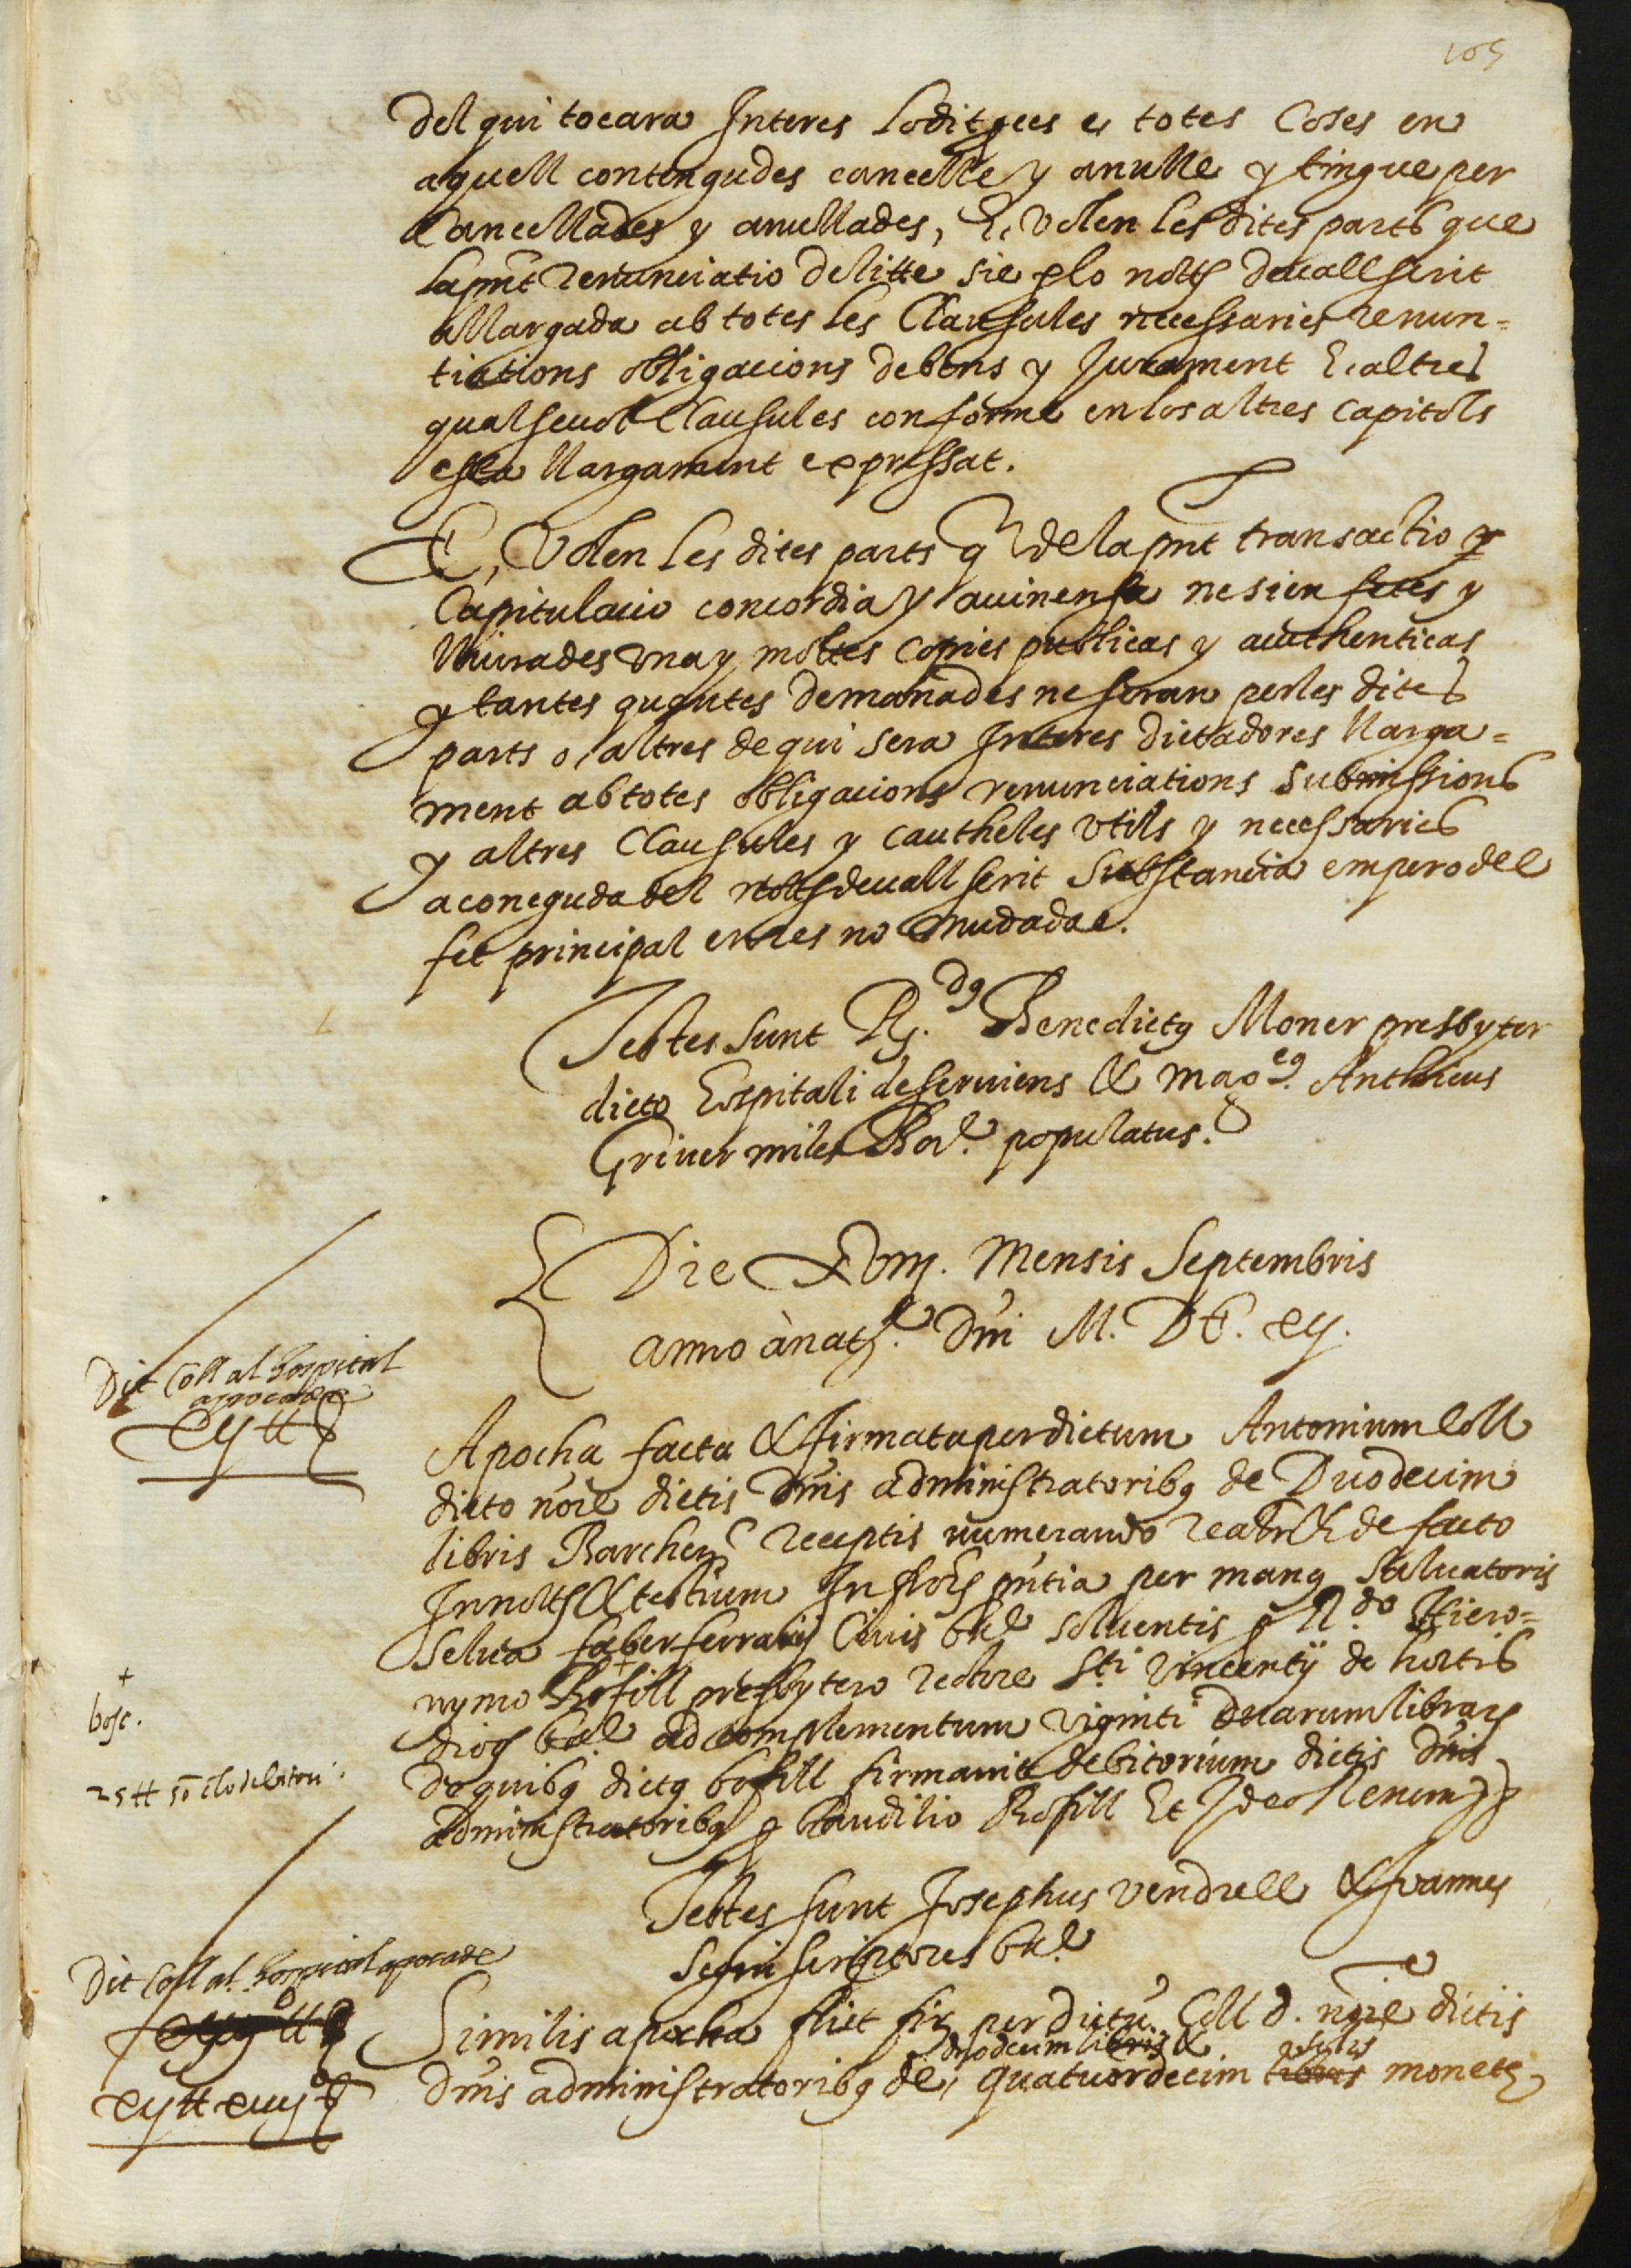 105
del qui tocara Interes lo dit proces e totes Coses en
aquell contengudes cancelle y anulle y tingue per
Cancellades y anullades, E, volen les dites parts que
la pnt renunciatio de litte sie p lo notj devall scrit
allargada ab totes les Clausules necessaries renun=
tiations obligacions de bens y Jurament E, altres
qualsevol Clausules conforme en los altres capitols
esta llargament expressat.
E, Volen les dites parts q de la pnt transactio y
Capitulacio concordia y avinensa ne sien fetes y
lliurades una y moltes copies publicas y authenticas
y tantes quantes demanades ne seran per les dites
parts o, altres de qui sera Interes dictadores llarga=
ment ab totes obligacions renunciations submissions
y altres Clausules y cautheles utils y necessaries
a coneguda del notj devall scrit substancia empero del
fet principal en res no mudada.
Testes sunt R. dg Benedictg Moner presbyter
dicto Hospitali deserviens & magcg. Anthicus
Griver miles Bar.e populatus.
Die xviij. Mensis Septembris
anno à natj.e Dni M. DC. xij.
Dit Coll al hospital
apoca de
xij tt
Apocha facta & firmata per dictum Antonium Coll
dicto noie dictis Dnis administratoribg de Duodecim
libris Barchen receptis numerando realr & de facto
In notj & testium Infrorj pntia per mang Salvatoris
Selva faber ferrarij Civis bne solventis p R.do Hiero=
nymo + Bofill presbytero rectore Sti Vincentij de hortis
+
bosc.
diog bne ad complementum viginti duarum librarj
de quibg dictg bofill firmavit debitorium dictis Dnis
administratoribg p Baudilio Bofill Et Ideo Renun
Testes sunt Josephus Vendrell & Joannes
Segui scriptores bne
Dit Coll al hospital apoca de
xij tt xiiij
Similis apocha fuit fir per dictu Coll d. noie dictis
duodecim libris &
solis
Dnis administratoribg de, quatuordecim libris monetę